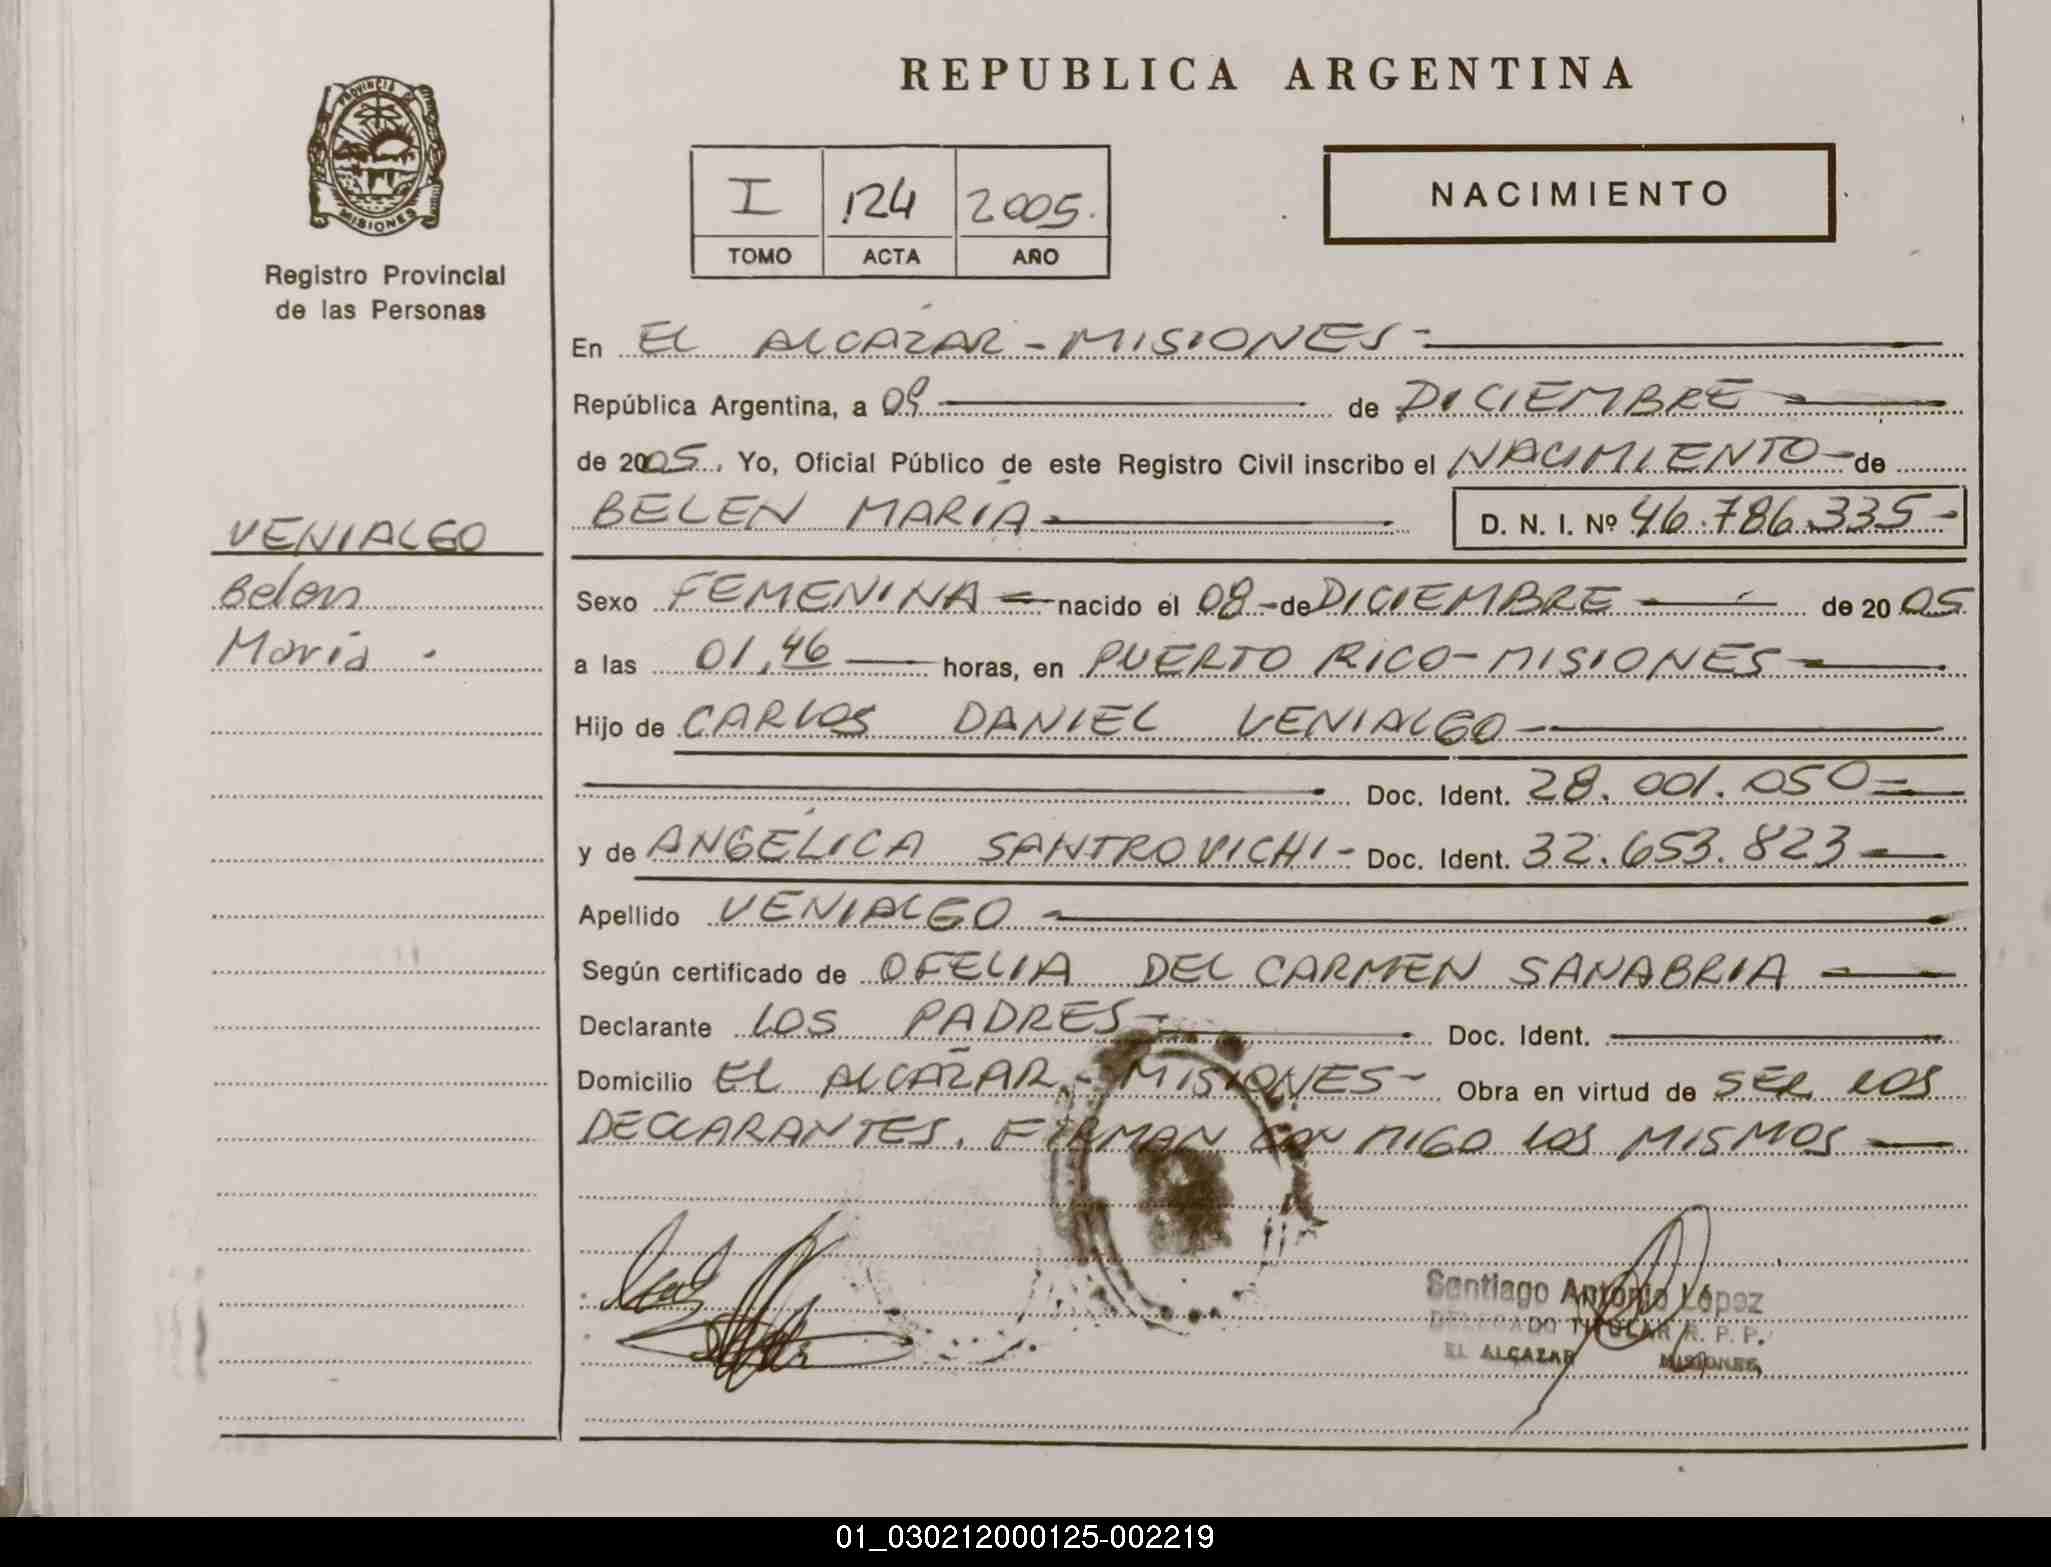 REPUBLICA ARGENTINA
PROVINCIA DE
MISIONES
Registro Provincial
de las Personas
I 124 2005.
TOMO ACTA AÑO
NACIMIENTO
En EL ALCÁZAR - MISIONES -
República Argentina, a 09 de DICIEMBRE
de 2005. Yo, Oficial Público de este Registro Civil inscribo el NACIMIENTO - de
BELEN MARÍA D. N. I. Nº 46.786.335-
VENIALGO
Belen
María .
Sexo FEMENINA nacido el 08 - de DICIEMBRE de 2005
a las 01,46 horas, en PUERTO RICO - MISIONES
Hijo de CARLOS DANIEL VENIALGO
Doc. Ident. 28.001.050
y de ANGÉLICA SANTROVICHI - Doc. Ident. 32.653.823
Apellido VENIALGO
Según certificado de OFELIA DEL CARMEN SANABRIA
Declarante LOS PADRES Doc. Ident.
Domicilio EL ALCÁZAR - MISIONES - Obra en virtud de SER LOS
DECLARANTES. FIRMAN CON MIGO LOS MISMOS
Santiago Antonio López
DELEGADO TITULAR R. P. P.
EL ALCAZAR MISIONES
01_030212000125-002219